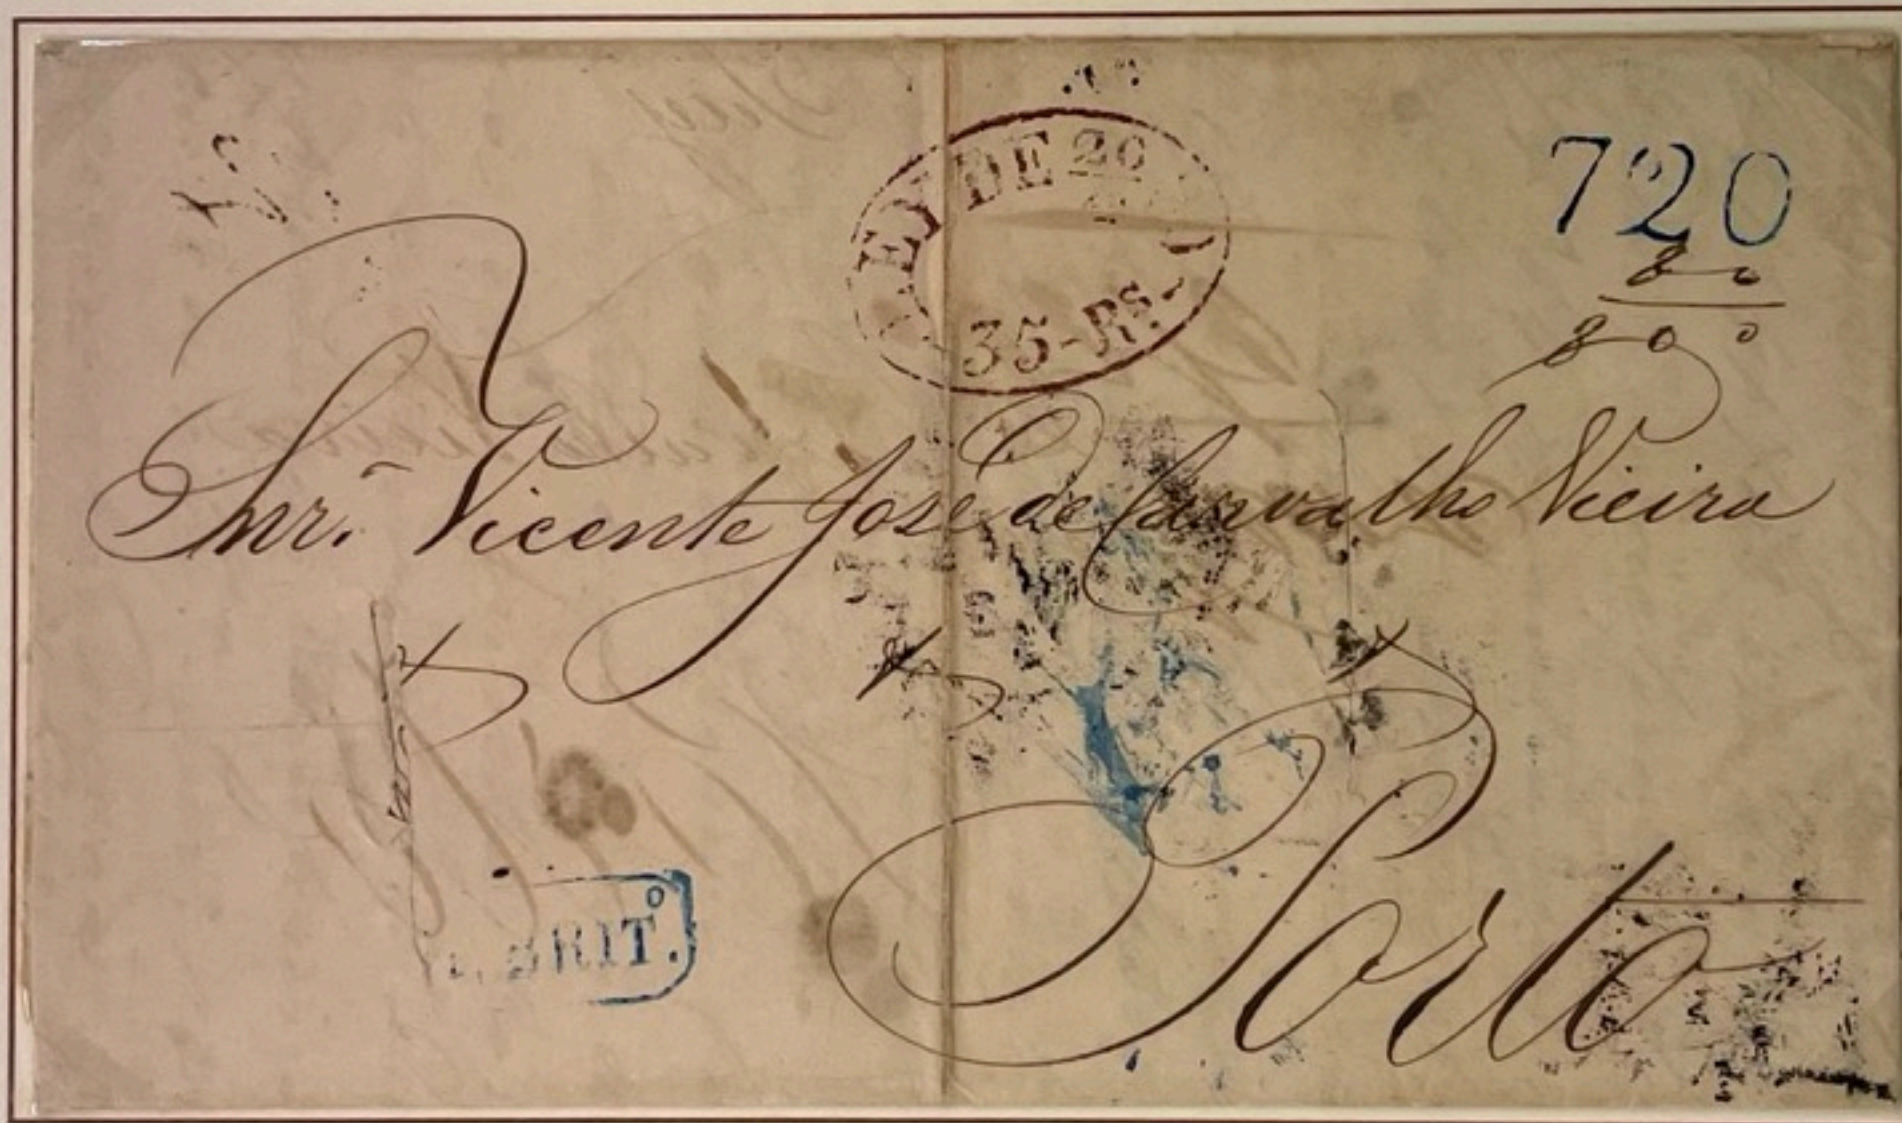 LEY DE 20
35-Rs.
720
80
800
Snr. Vicente José de Carvalho Vieira
Porto
BRIT.º